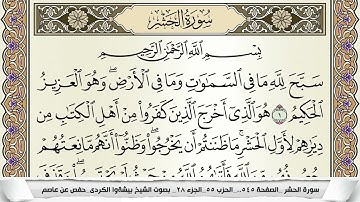 سُورَةُ الحَشْرِ
بِسْمِ اللَّهِ الرَّحْمَٰنِ الرَّحِيمِ
سَبَّحَ لِلَّهِ مَا فِي السَّمَاوَاتِ وَمَا فِي الْأَرْضِ ۖ وَهُوَ الْعَزِيزُ
الْحَكِيمُ ١ هُوَ الَّذِي أَخْرَجَ الَّذِينَ كَفَرُوا مِنْ أَهْلِ الْكِتَابِ مِن
دِيَارِهِمْ لِأَوَّلِ الْحَشْرِ ۚ مَا ظَنَنتُمْ أَن يَخْرُجُوا ۖ وَظَنُّوا أَنَّهُم مَّانِعَتُهُمْ
سورة الحشر _الصفحة ٥٤٥_ الحزب ٥٥_الجزء ٢٨_ بصوت الشيخ بيشةوا الكردى_ حفص عن عاصم